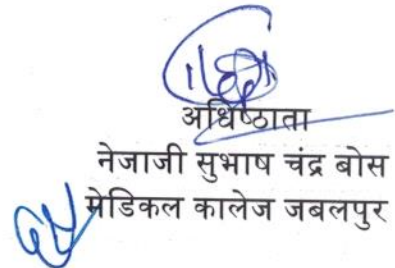 अधिष्ठाता
नेजाजी सुभाष चंद्र बोस
मेडिकल कालेज जबलपुर